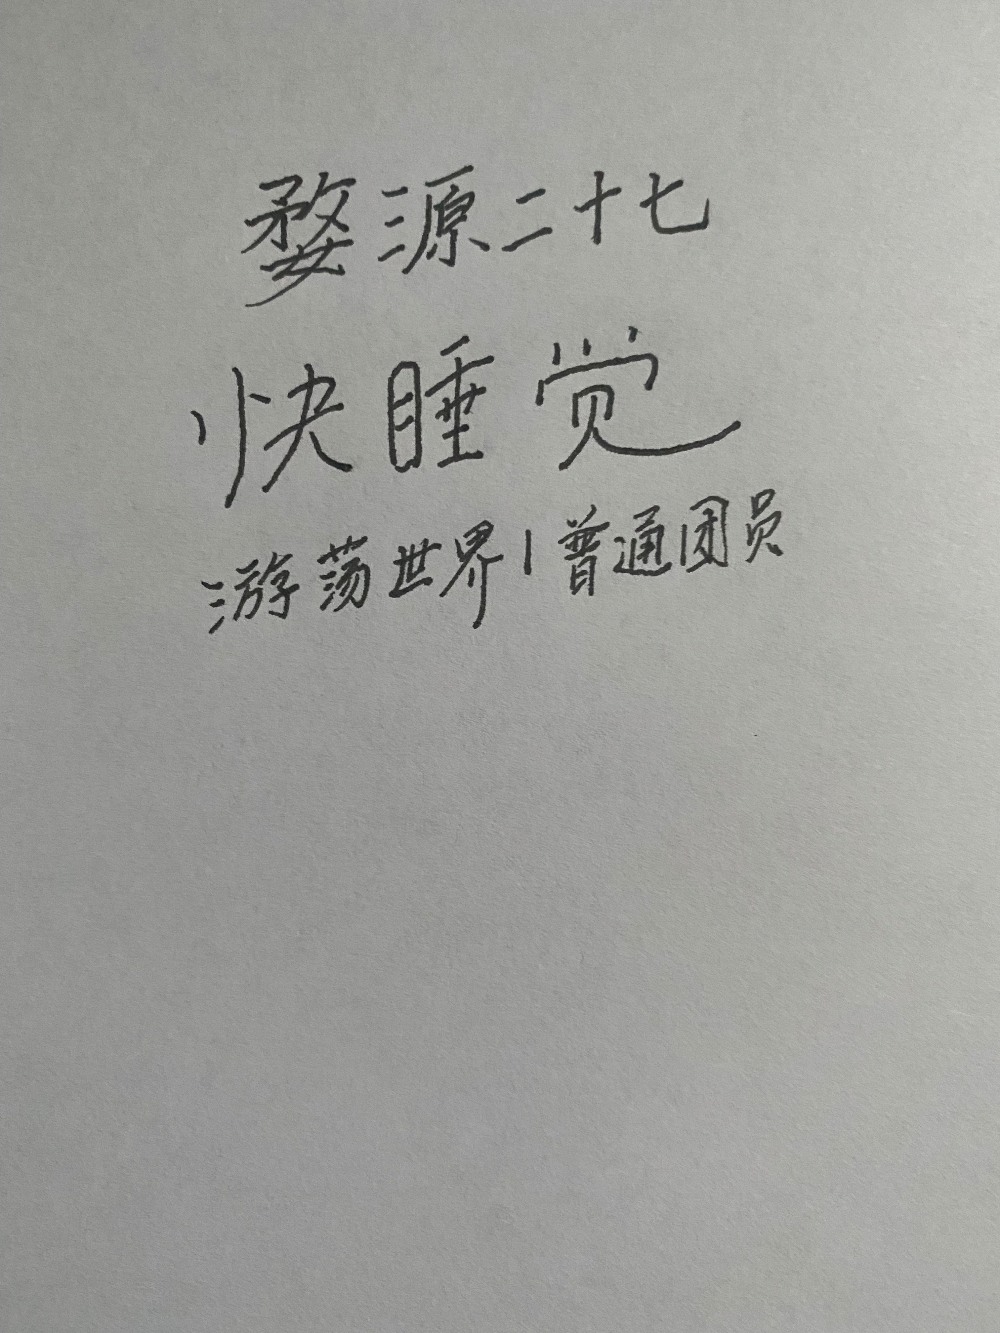 婺源二十七
快睡觉
游荡世界|普通团员